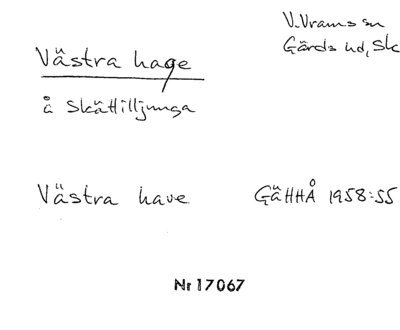 V. Vrams sn
Gärds hd, Sk
Västra hage
å Skättilljunga
Västra have GÄHHÅ 1958:55
Nr 17067